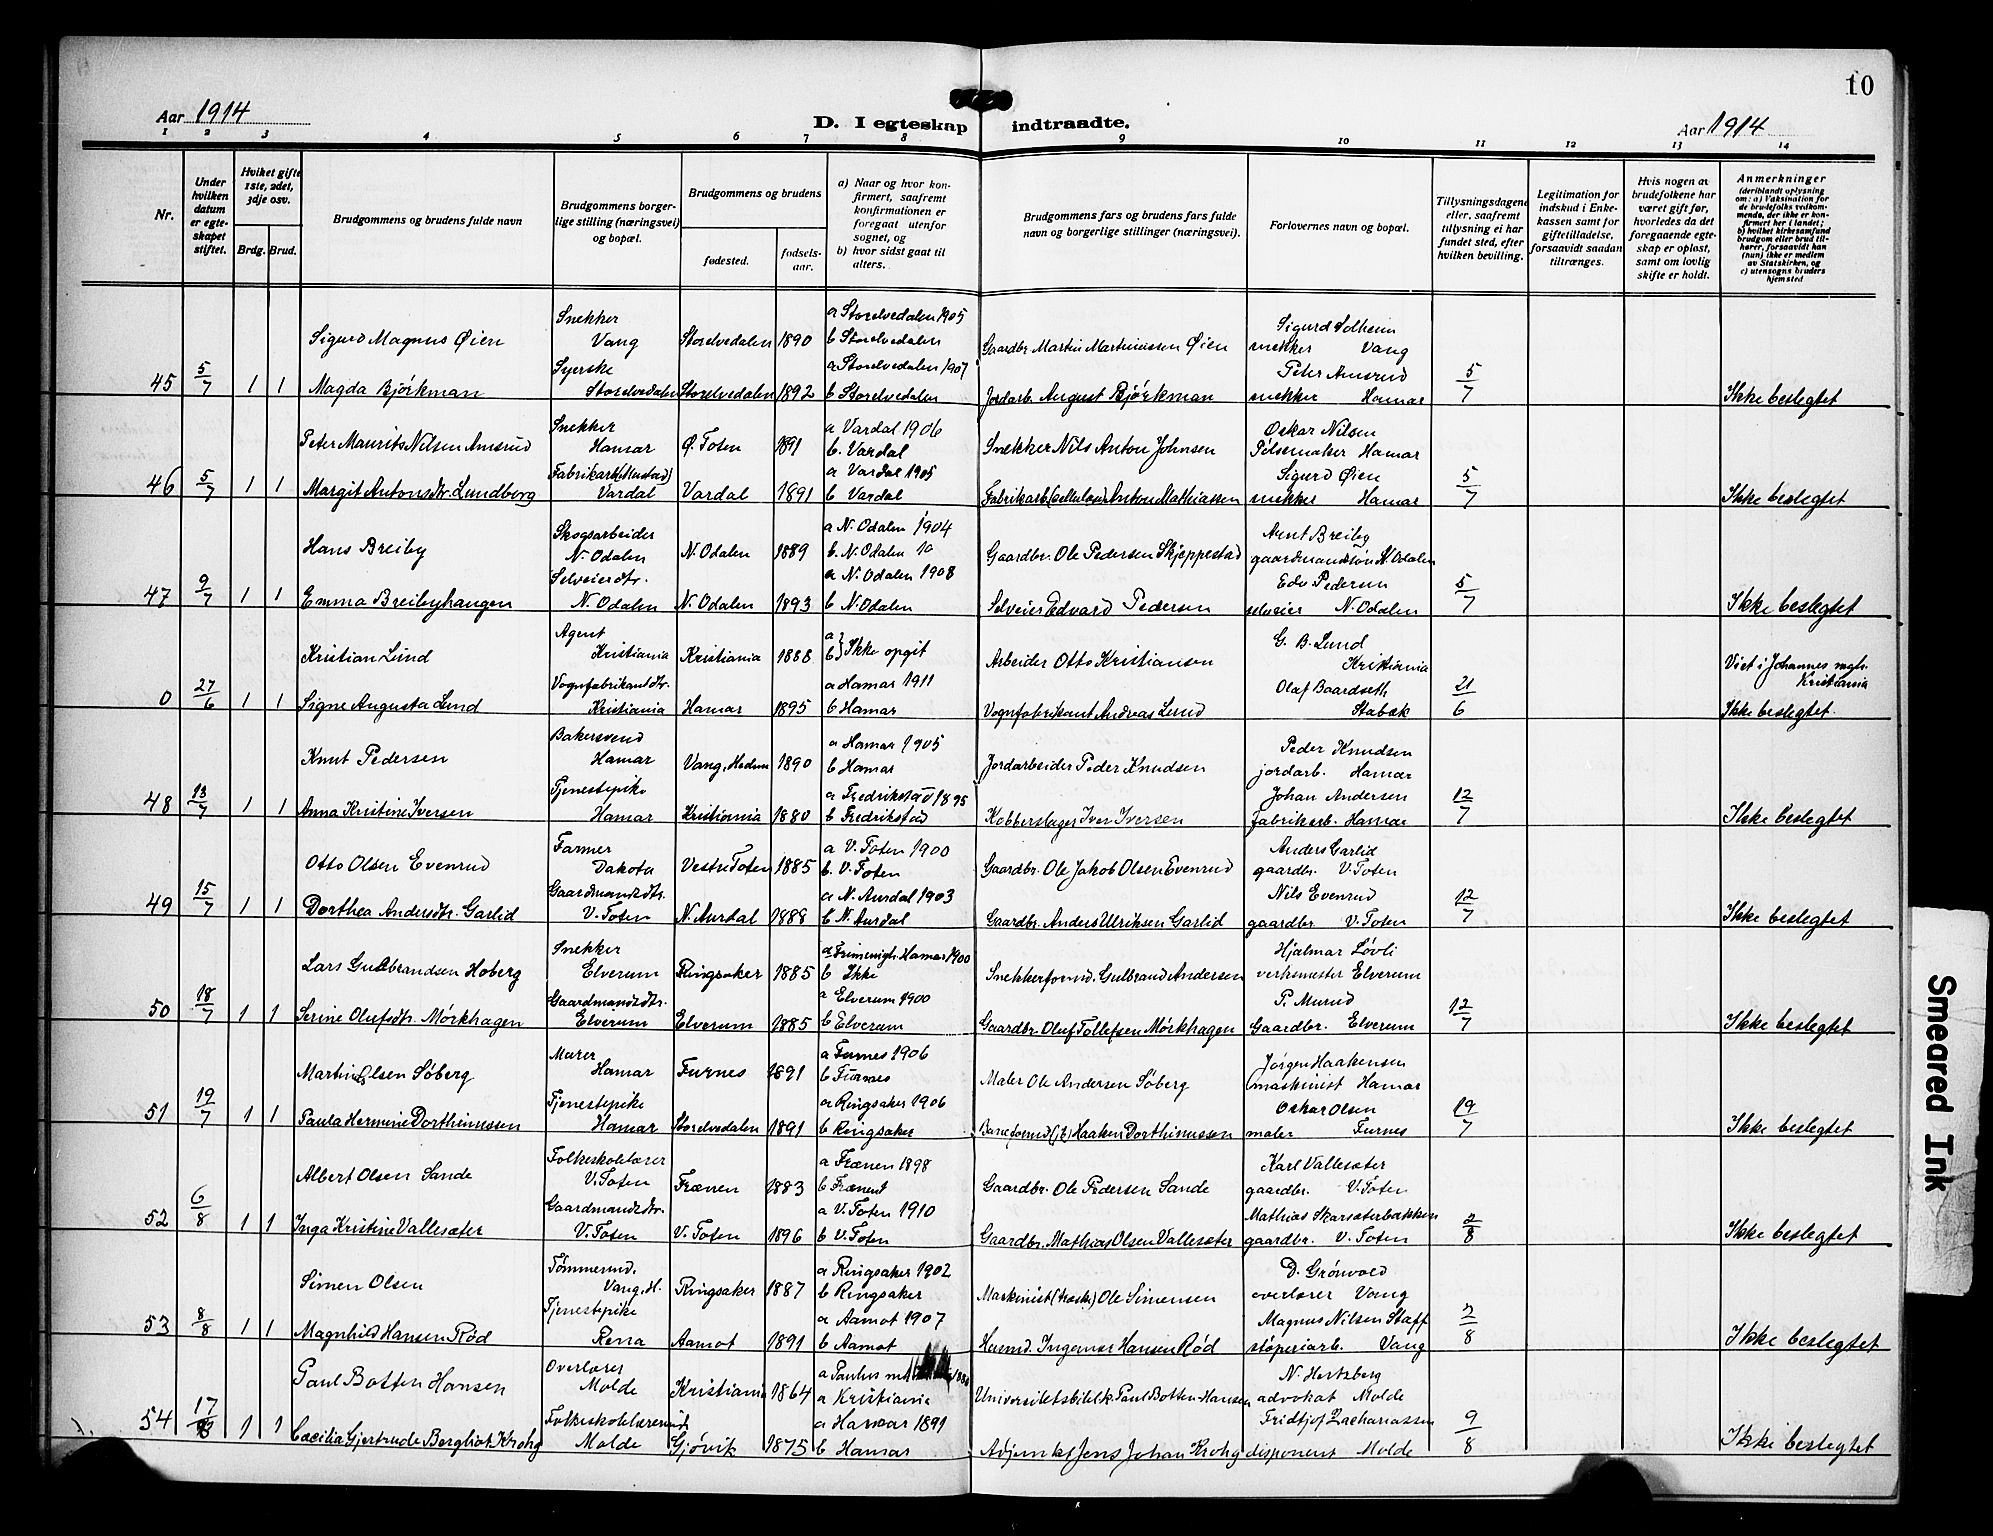 10
Aar 1914
D. I egteskap indtraadte.
Aar 1914
1 2 3 4 5 6 7 8 9 10 11 12 13 14
Nr.
Under hvilken datum er egteskapet stiftet.
Hvilket gifte 1ste, 2det, 3dje osv.
Brdg. Brud.
Brudgommens og brudens fulde navn
Brudgommens borgerlige stilling (næringsvei) og bopæl.
Brudgommens og brudens
fødested.
fødselsaar.
a) Naar og hvor konfirmert, saafremt konfirmationen er foregaat utenfor sognet, og
b) hvor sidst gaat til alters.
Brudgommens fars og brudens fars fulde navn og borgerlige stillinger (næringsvei).
Forlovernes navn og bopæl.
Tillysningsdagene eller, saafremt tillysning ei har fundet sted, efter hvilken bevilling.
Legitimation for indskud i Enkekassen samt for giftetilladelse, forsaavidt saadan tiltrænges.
Hvis nogen av brudefolkene har været gift før, hvorledes da det foregaaende egteskap er opløst, samt om lovlig skifte er holdt.
Anmerkninger
(deriblandt oplysning om: a) Vaksination for de brudefolks vedkommende, der ikke er konfirmert her i landet; b) hvilket kirkesamfund brudgom eller brud tilhører, forsaavidt han (hun) ikke er medlem av Statskirken, og c) utensogns bruders hjemsted
45 5/7 1 1
Sigurd Magnus Øien Snekker Vang Storelvedalen 1890 a Storelvedalen 1905 b Storelvedalen Gaardbr. Martin Martinussen Øien Sigurd Solheim snekker Vang
Magda Bjørkman Syerske Storelvedalen Storelvedalen 1892 a Storelvedalen 1907 b Storelvedalen Jordarb. August Bjørkman Peter Amsrud snekker Hamar 5/7 Ikke beslegtet
46 5/7 1 1
Peter Maurits Nilsen Amsrud Snekker Hamar Ø. Toten 1891 a Vardal 1906 b. Vardal Snekker Nils Anton Johnsen Oskar Nilsen Pølsemaker Hamar
Margit Antonsdtr. Lundberg Fabrikarb. (Mustad) Vardal Vardal 1891 a Vardal 1905 b Vardal Fabrikarb. (cellulose) Anton Mathiassen Sigurd Øien snekker Hamar 5/7 Ikke beslegtet
47 9/7 1 1
Hans Breiby Skogsarbeider N. Odalen N. Odalen 1889 a N. Odalen 1904 b. N. Odalen 10 Gaardbr. Ole Pedersen Skjeppestad Arnt Breiby gaardmandssøn N. Odalen
Emma Breibyhaugen Selveierdtr. N. Odalen N. Odalen 1893 a N. Odalen 1908 b N. Odalen Selveier Edvard Pedersen Edv Pedersen selveier N. Odalen 5/7 Ikke beslegtet
0 27/6 1 1
Kristian Lund Agent Kristiania Kristiania 1888 a b } Ikke opgit Arbeider Otto Kristiansen G. B. Lund Kristiania Viet i Johannes mgh. Kristiania
Signe Augusta Lund Vognfabrikantdtr. Kristiania Hamar 1895 a Hamar 1911 b Hamar Vognfabrikant Andreas Lund Olaf Baardseth Stabæk 21/6 Ikke beslegtet.
48 13/7 1 1
Knut Pedersen Bakersvend Hamar Vang, Hedm 1890 a Hamar 1905 b Hamar Jordarbeider Peder Knudsen Peder Knudsen jordarb. Hamar
Anna Kristine Iversen Tjenestepike Hamar Kristiania 1880 a Fredrikstad 1895 b Fredrikstad Kobberslager Iver Iversen Johan Andersen fabrikarb. Hamar 12/7 Ikke beslegtet
49 15/7 1 1
Otto Olsen Evenrud Farmer Dakota Vestre Toten 1885 a V. Toten 1900 b. V. Toten Gaardbr. Ole Jakob Olsen Evenrud Anders Garlid gaardbr. V. Toten
Dorthea Andersdtr. Garlid Gaardmandsdtr. V. Toten N. Aurdal 1888 a N. Aurdal 1903 b N. Aurdal Gaardbr. Anders Ulriksen Garlid Nils Evenrud gaardbr V. Toten 12/7 Ikke beslegtet
50 18/7 1 1
Lars Gulbrandsen Hoberg Snekker Elverum Ringsaker 1885 a Frimenigh. Hamar 1900 b Ikke Snekkerformd. Gulbrand Andersen Hjalmar Løvli verkmester Elverum
Serine Olufsdtr. Mørkhagen Gaardmandsdtr. Elverum Elverum 1885 a Elverum 1900 b Elverum Gaardbr. Oluf Tollefsen Mørkhagen P. Murud Gaardbr. Elverum 12/7 Ikke beslegtet
51 19/7 1 1
Martin Olsen Søberg Murer Hamar Furnes 1891 a Furnes 1906 b Furnes Maler Ole Andersen Søberg Jørgen Haakensen maskinist Hamar
Paula Hermine Dorthinussen Tjenestepike Hamar Storelvedalen 1891 a Ringsaker 1906 b Ringsaker Baneformd Haaken Dorthinussen Oskar Olsen maler Furnes 19/7 Ikke beslegtet
52 6/8 1 1
Albert Olsen Sande Folkeskolelærer V. Toten Frænen 1883 a Frænen 1898 b Frænen Gaardbr. Ole Pedersen Sande Karl Vallesæter gaardbr. V. Toten
Inga Kristine Vallesæter Gaardmandsdtr. V. Toten V. Toten 1896 a V. Toten 1910 b V. Toten Gaardbr. Mathias Olsen Vallesæter Mathias Skarsæterbakken gaardbr. V. Toten 2/8 Ikke beslegtet
53 8/8 1 1
Simen Olsen Tømmermd. Vang, H. Ringsaker 1887 a Ringsaker 1902 b Ringsaker Maskinist Ole Simensen D. Grønvold overlærer Vang
Magnhild Hansen Rød Tjenestepike Rena Aamot 1891 a Aamot 1907 b Aamot Hermd. Ingemar Hansen Rød Magnus Nilsen Staff støperiarb. Vang 2/8 Ikke beslegtet
54 17/8 1 1
Paul Botten Hansen Overlærer Molde Kristiania 1864 a Paulus m a Kristiania Universitetsbiblk. Paul Botten-Hansen N. Hertzberg advokat Molde
Cæcilia Gjertrude Bergliot Krohg Folkeskolelærerinde Molde Gjøvik 1875 a Hamar 1891 b Hamar Adjunkt Jens Johan Krohg Fridtjof Zachariassen disponent Molde 9/8 Ikke beslegtet
Smeared Ink